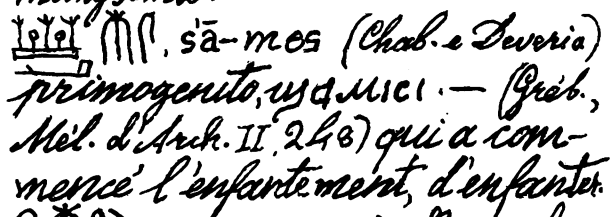 𓆷𓂝𓄟𓋴, s'ā-mes (Chab. e Deveria)
primogenito, ϣⲁⲙⲓⲥⲓ. — (Gréb.,
Mél. d'Arch. II, 248) qui a com-
mencé l'enfantement, d'enfanter.